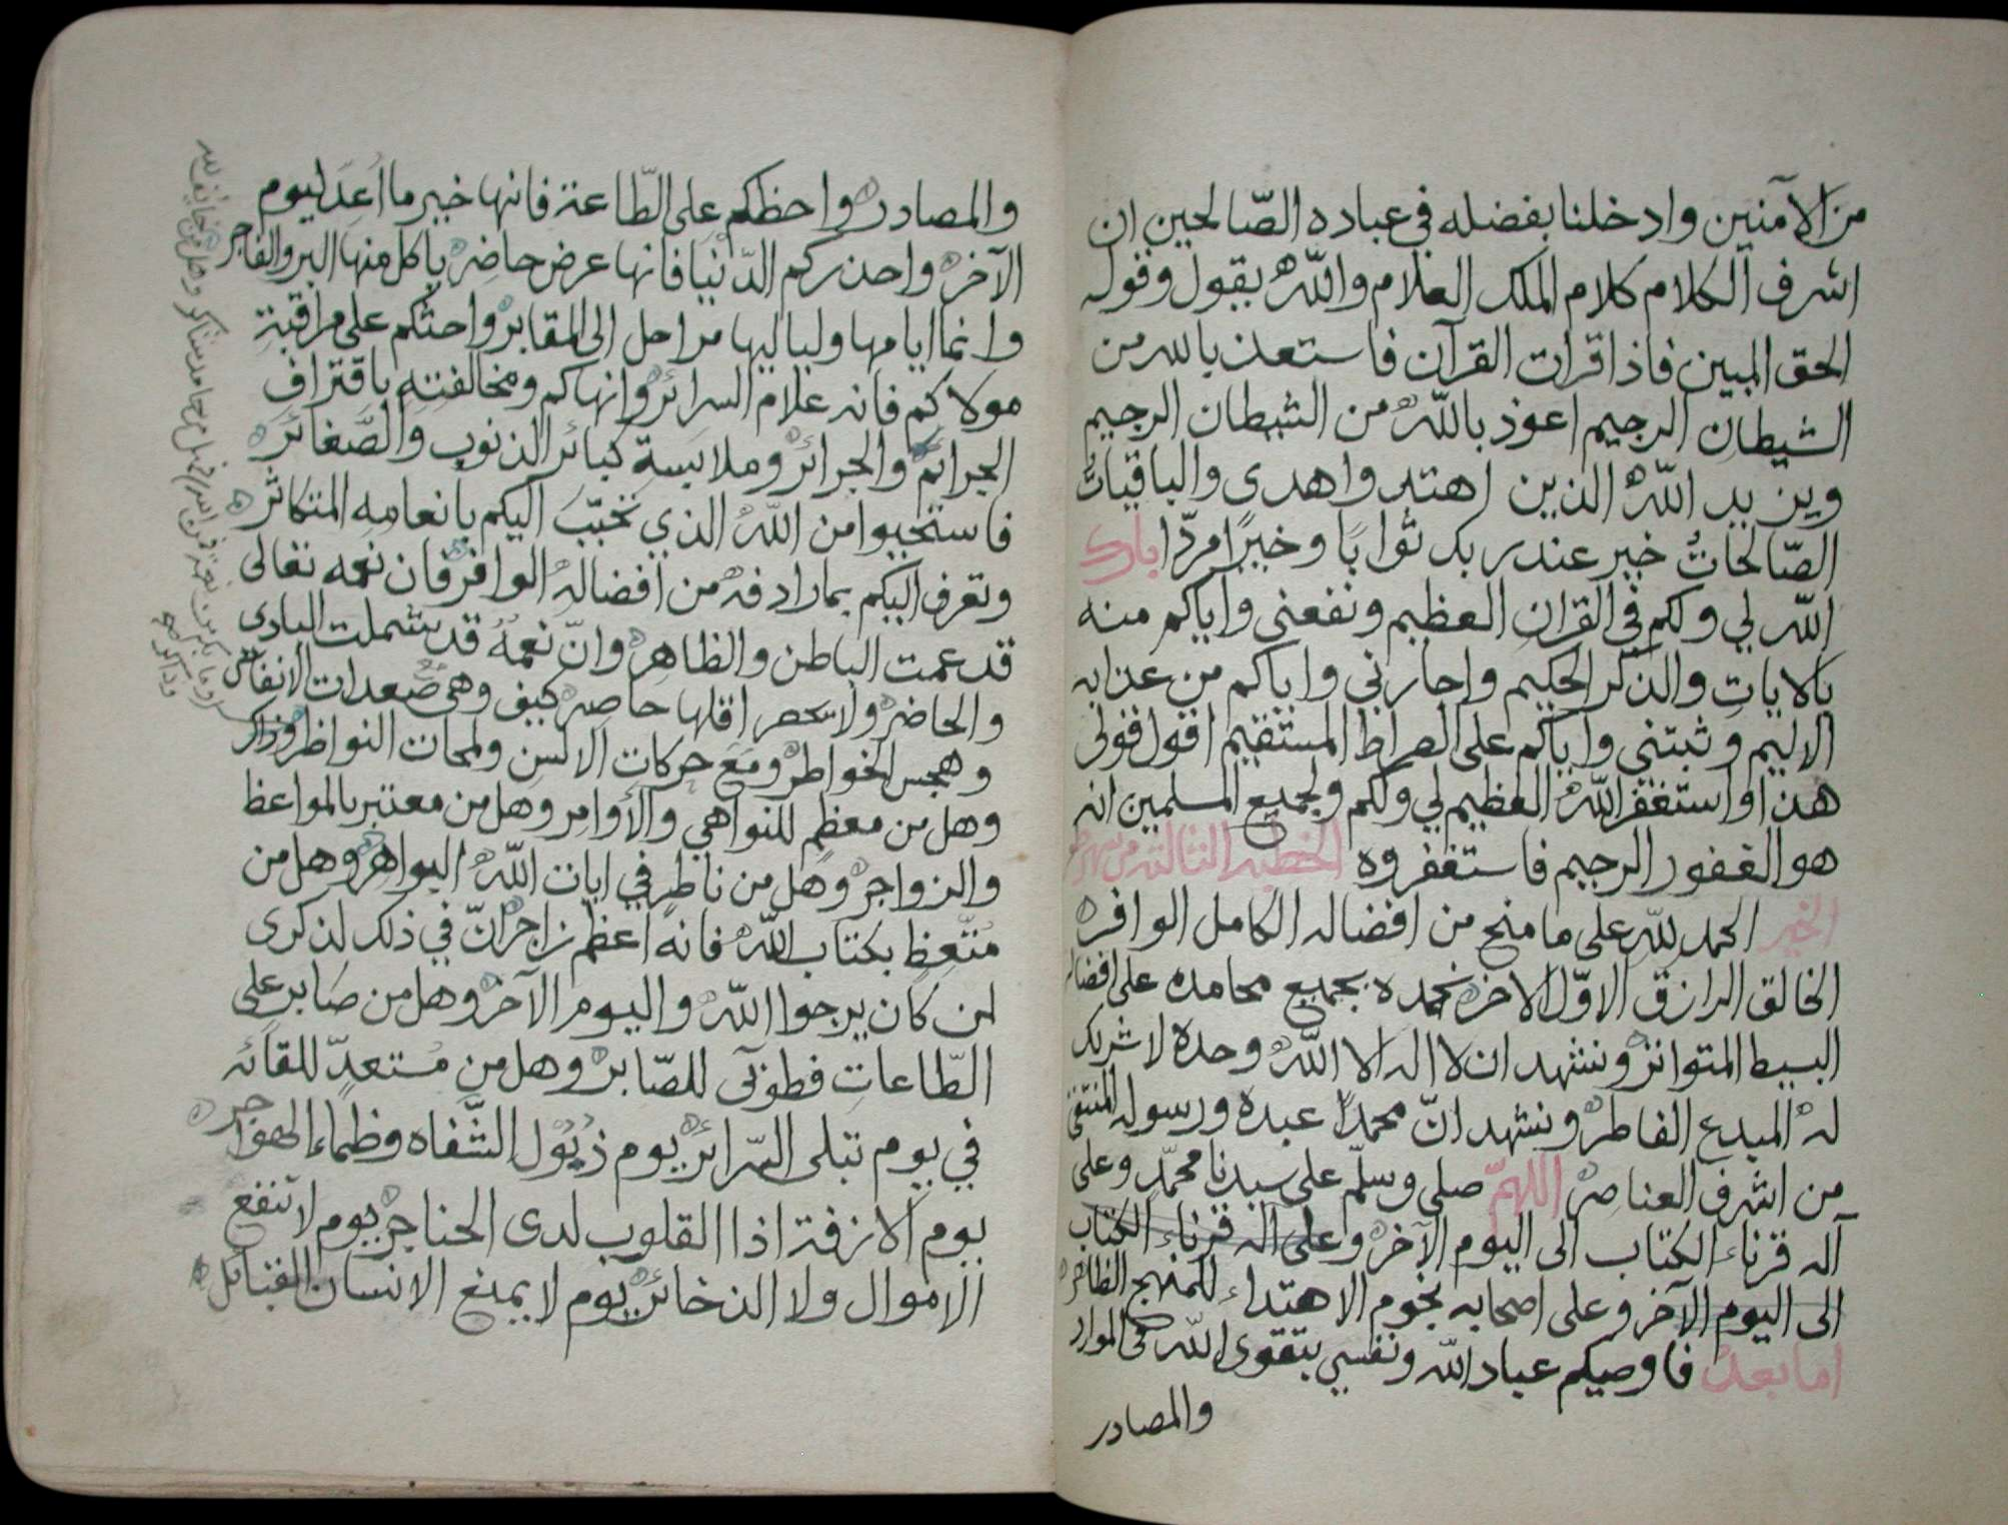 من الآمنين وادخلنا بفضله في عباده الصّالحين ان
اشرف الكلام كلام الملك العلام والله يقول وقوله
الحق المبين فاذا قرات القرآن فاستعذ بالله من
الشيطان الرجيم اعوذ بالله من الشيطان الرجيم
ويزيد الله الذين اهتدوا هدى والباقياتُ
الصّالحاتُ خير عند ربك ثوابًا وخيرًا مردّا بارك
الله لي ولكم في القران العظيم ونفعني واياكم منه
بالايات والذكر الحكيم واجارني واياكم من عذابه
الاليم وثبتني واياكم على الصراط المستقيم اقول قولى
هذا واستغفر الله العظيم لي ولكم ولجميع المسلمين انه
هو الغفور الرحيم فاستغفروه الخطبه الثالثه من شهر
الخير الحمد لله على ما منح من افضاله الكامل الوافر
الخالق الرازق الاوّل الاخر نحمده بجميع محامده على افضاله
البسيط المتواتر ونشهد ان لا اله الا الله وحده لا شريك
له المبدع الفاطر ونشهد انّ محمدًا عبده ورسوله المنتقى
من اشرف العناصر اللهمّ صلي وسلّم على سيدنا محمّد وعلى
آله قرناء الكتاب الى اليوم الآخر وعلى اله قرناء الكتاب
الى اليوم الآخر وعلى اصحابه نجوم الاهتداء للمنهج الظاهر
اما بعد فاوصيكم عباد الله ونفسي بتقوى الله في الموارد
والمصادر
والمصادر واحظكم على الطّاعة فانها خير ما اعدّ ليوم
الآخر واحذركم الدّنيا فانها عرض حاضر ياكل منها البر والفاجر
وانما ايامها ولياليها مراحل الى المقابر واحثكم على مراقبة
مولاكم فانه علام السرائر وانهاكم ومخالفته باقتراف
الجرائم والجرائر وملابسة كبائر الذنوب والصّغائر
فاستحيوا من الله الذي تحبّبَ اليكم بانعامه المتكاثر
وتعرف اليكم بما رادفه من افضاله الوافر فان نعمه تعالى
قد عمت الباطن والظاهر وانّ نعمهُ قد شملت البادى
والحاضر ولا يحصر اقلها حاصر كيف وهى صُعدات الانفاس
وهجس الخواطر ومع حركات الالسن ولمحات النواظر
وهل من معظم للنواهي والأوامر وهل من معتبر بالمواعظ
والزواجر وهل من ناظر في ايات الله البواهر وهل من
متّعظ بكتاب الله فانه اعظم زاجر انّ في ذلك لذكرى
لمن كان يرجوا الله واليوم الآخر وهل من صابر على
الطّاعات فطوبى للصّابر وهل من مستعدّ للقائه
في يوم تبلى السّرائر يوم ذُبُول الشّفاه وظماء الهواجر
يوم الازفة اذا القلوب لدى الحناجر يوم لا تنفع
الاموال ولا الذخائر يوم لا يمنع الانسان القبائل